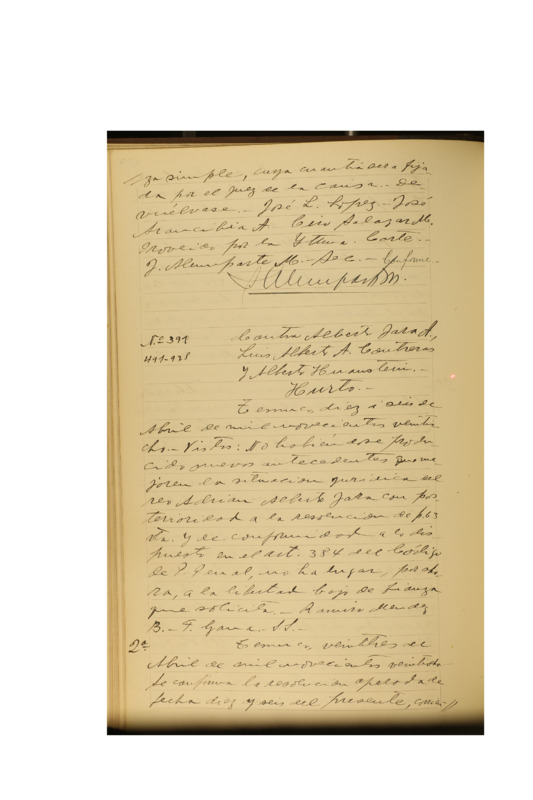 za simple, cuya cuantía será fija
da por el Juez de la causa.. De
vuélvase.. José L. Lopez - José
Arancibia A. Ciro Salazar M.
Proveido por la Iltma. Corte..
J. Alemparte M. - Sec. - Conforme.
J. Alemparte M.
N.º 391
Contra Alberto Jara A,
Luis Alberto A. Contreras
y Alberto
Hurto.-
Temuco, diez i seis de
Abril de mil novecientos veintio
cho.- Vistos: No habiéndose produ
cido nuevos antecedentes que me
joren la situacion juridica del
reo Adrian Alberto Jara con pos
terioridad a la resolucion de f. 63
vta. y de conformidad a lo dis
puesto en el art. 384 del Código
de P Penal, no ha lugar, por aho
ra, a la libertad bajo de fianza
que solicita.- Ramiro Mendez
B.- F. Gana. SS.-
2ª
Temuco, veintitres de
Abril de mil novecientos veintiocho
Se confirma la resolucion apelada de
fecha diez y seis del presente,